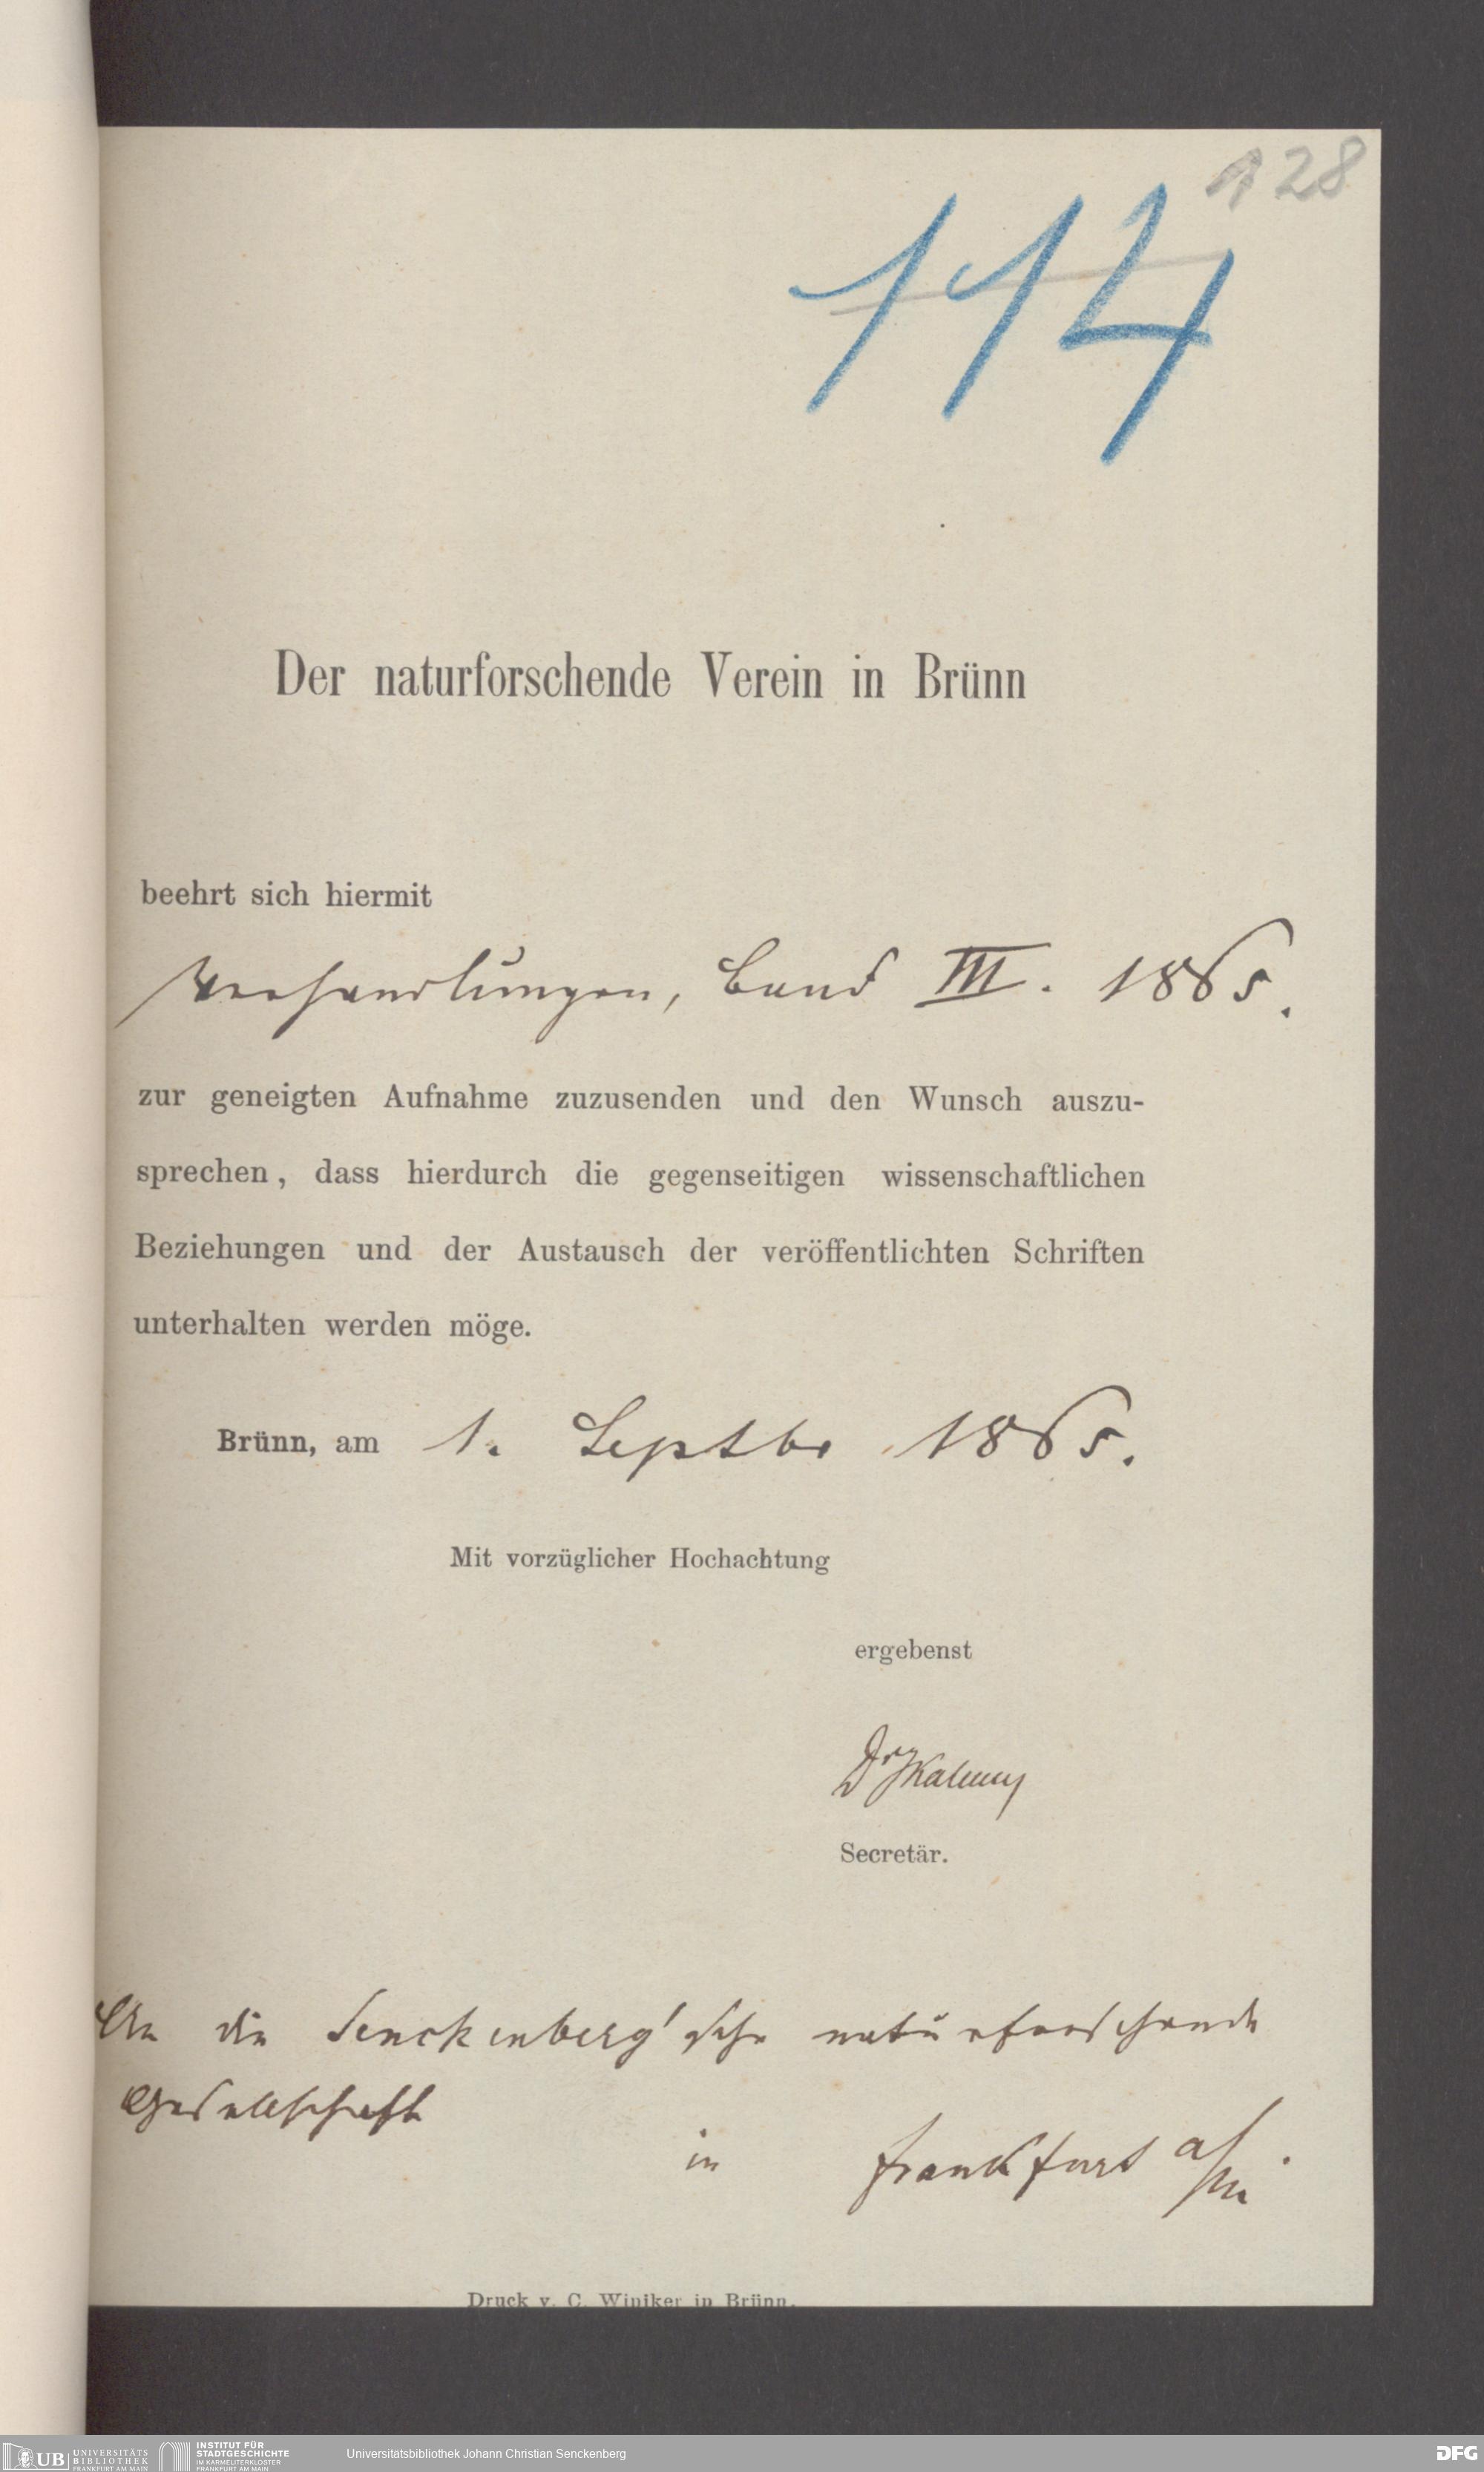 128
114
Der naturforschende Verein in Brünn
beehrt sich hiermit
Verhandlungen, Band III. 1865.
zur geneigten Aufnahme zuzusenden und den Wunsch auszu-
sprechen, dass hierdurch die gegenseitigen wissenschaftlichen
Beziehungen und der Austausch der veröffentlichten Schriften
unterhalten werden möge.
Brünn, am 1. Septbr 1865.
Mit vorzüglicher Hochachtung
ergebenst
Dr JKalmus
Secretär.
An die Senckenberg'sche naturforschende
Gesellschaft
in Frankfurt a/m.
Druck v. C. Winiker in Brünn.
UB UNIVERSITÄTS
BIBLIOTHEK
FRANKFURT AM MAIN
INSTITUT FÜR
STADTGESCHICHTE
IM KARMELITERKLOSTER
FRANKFURT AM MAIN
Universitätsbibliothek Johann Christian Senckenberg
DFG